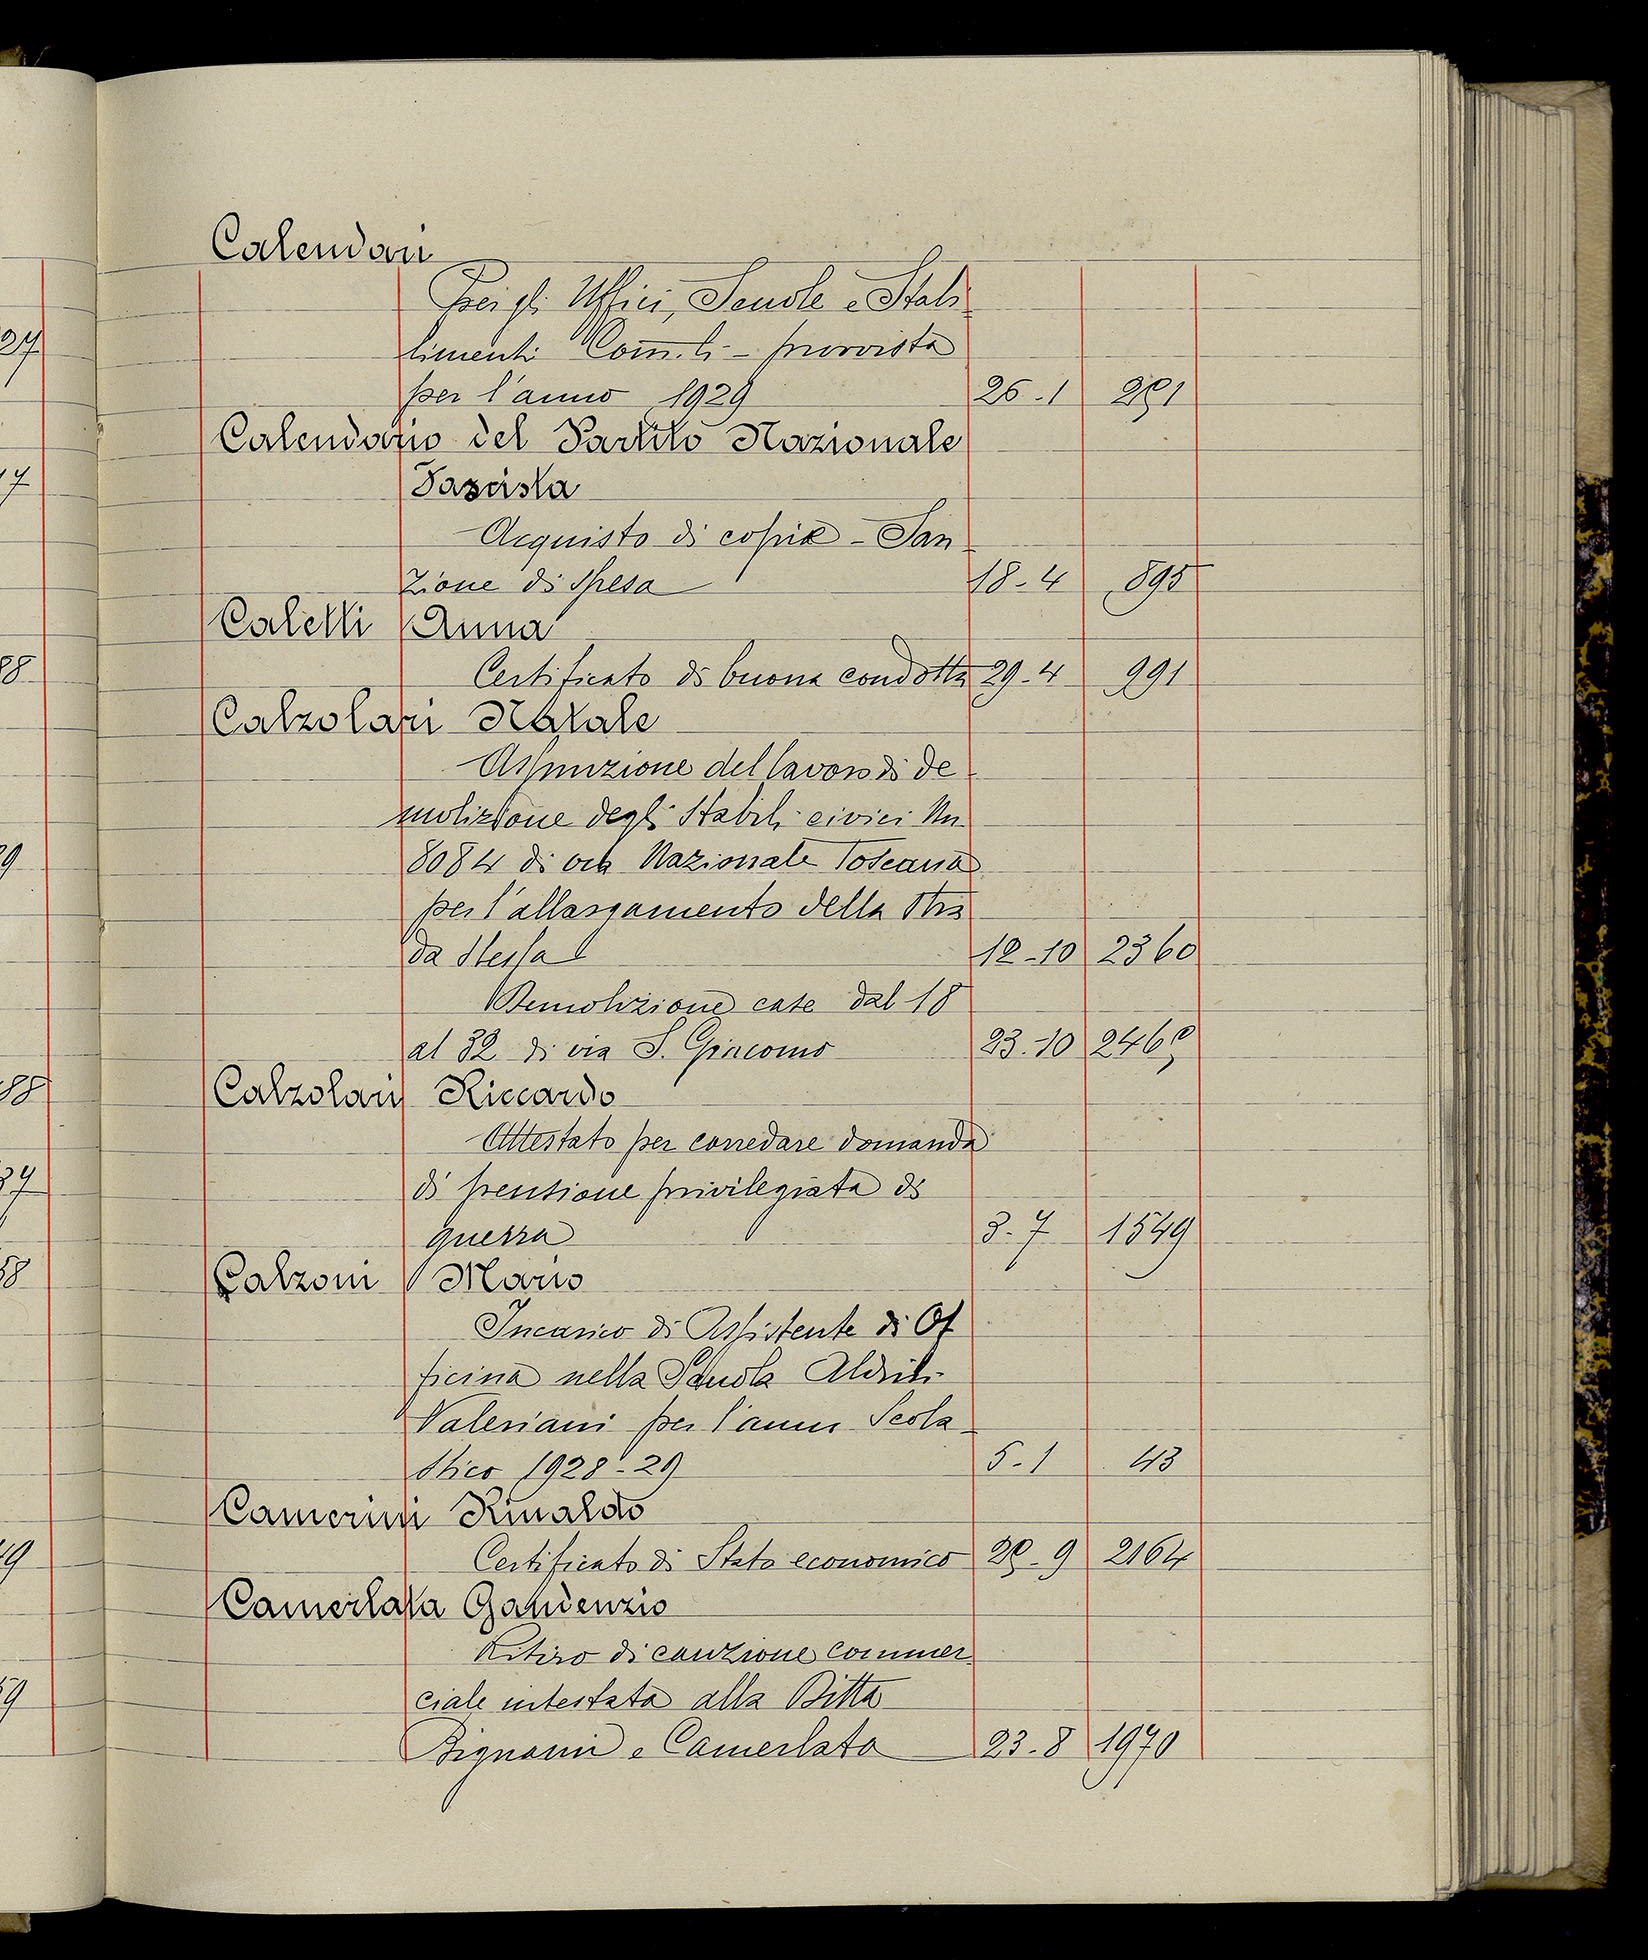 Calendari
Per gli Uffici, Scuole e Stabi-
limenti Com.li - provvista
per l'anno 1929 26-1 291
Calendario del Partito Nazionale
Fascista
Acquisto di copie - San-
zione di Spesa 18-4 895
Caletti Anna
Certificato di buona condotta 29-4 991
Calzolari Natale
Assunzione del lavoro di de-
molizione degli Stabili civici Nn.
80 84 di via Nazionale Toscana
per l'allargamento della Stra
da Stessa 12-10 2360
Demolizione case dal 18
al 32 di via S. Giacomo 23-10 2469
Calzolari Riccardo
Attestato per corredare domanda
di pensione privilegiata di
guerra 3-7 1549
Calzoni Mario
Incarico di Assistente di Of
ficina nella Scuola Aldini-
Valeriani per l'anno Scola-
stico 1928-29 5-1 43
Camerini Rinaldo
Certificato di Stato economico -9 2164
Camerlata Gaudenzio
Ritiro di cauzione commer-
ciale intestata alla Ditta
Bignami e Camerlata 23-8 1970
27
17
88
29
88
37
58
49
59